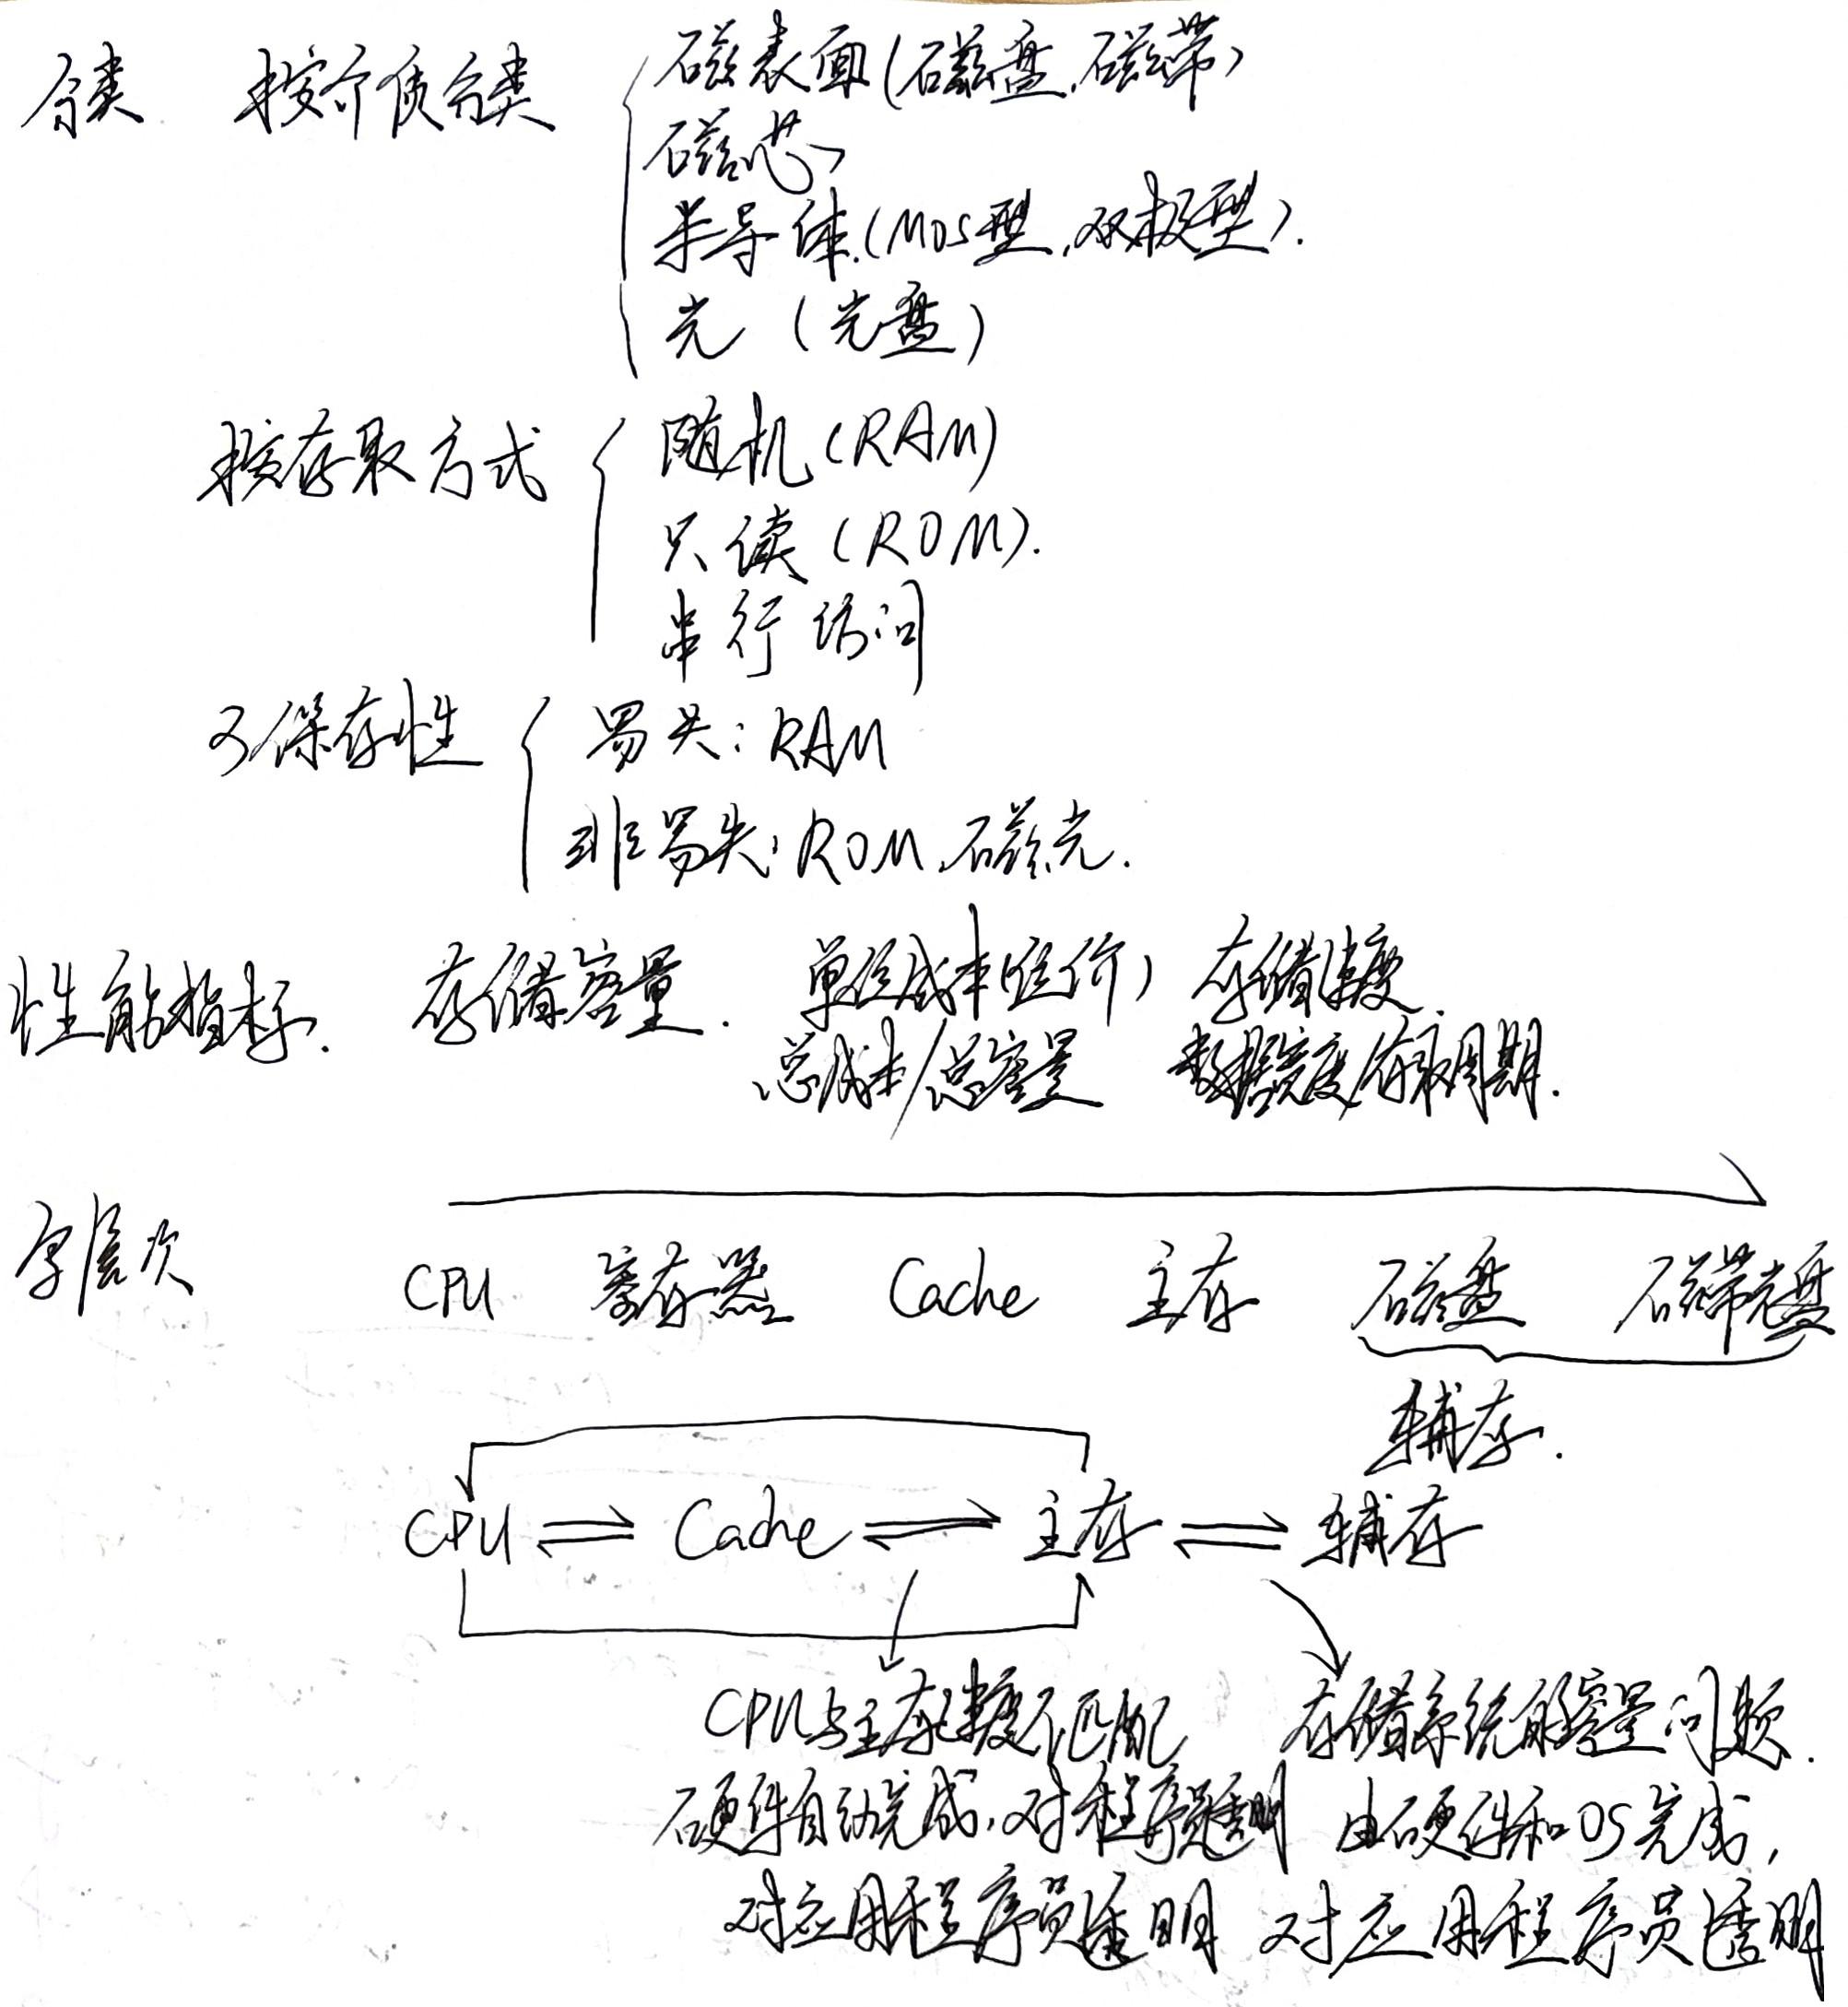 分类 按介质分类 磁表面(磁盘、磁带)
磁芯
半导体(MOS型、双极型).
光 (光盘)
按存取方式 随机(RAM)
只读(ROM).
串行访问
可保存性 易失:RAM
非易失:ROM、磁、光.
性能指标. 存储容量. 单位成本(位价) 存储速度.
总成本/总容量 数据宽度/存取周期.
层次
CPU 寄存器 Cache 主存 磁盘 磁带光盘
辅存.
CPU Cache 主存 辅存
CPU与主存速度不匹配 存储系统的容量问题.
硬件自动完成,对程序员透明 由硬件和OS完成,
对应用程序员透明 对应用程序员透明